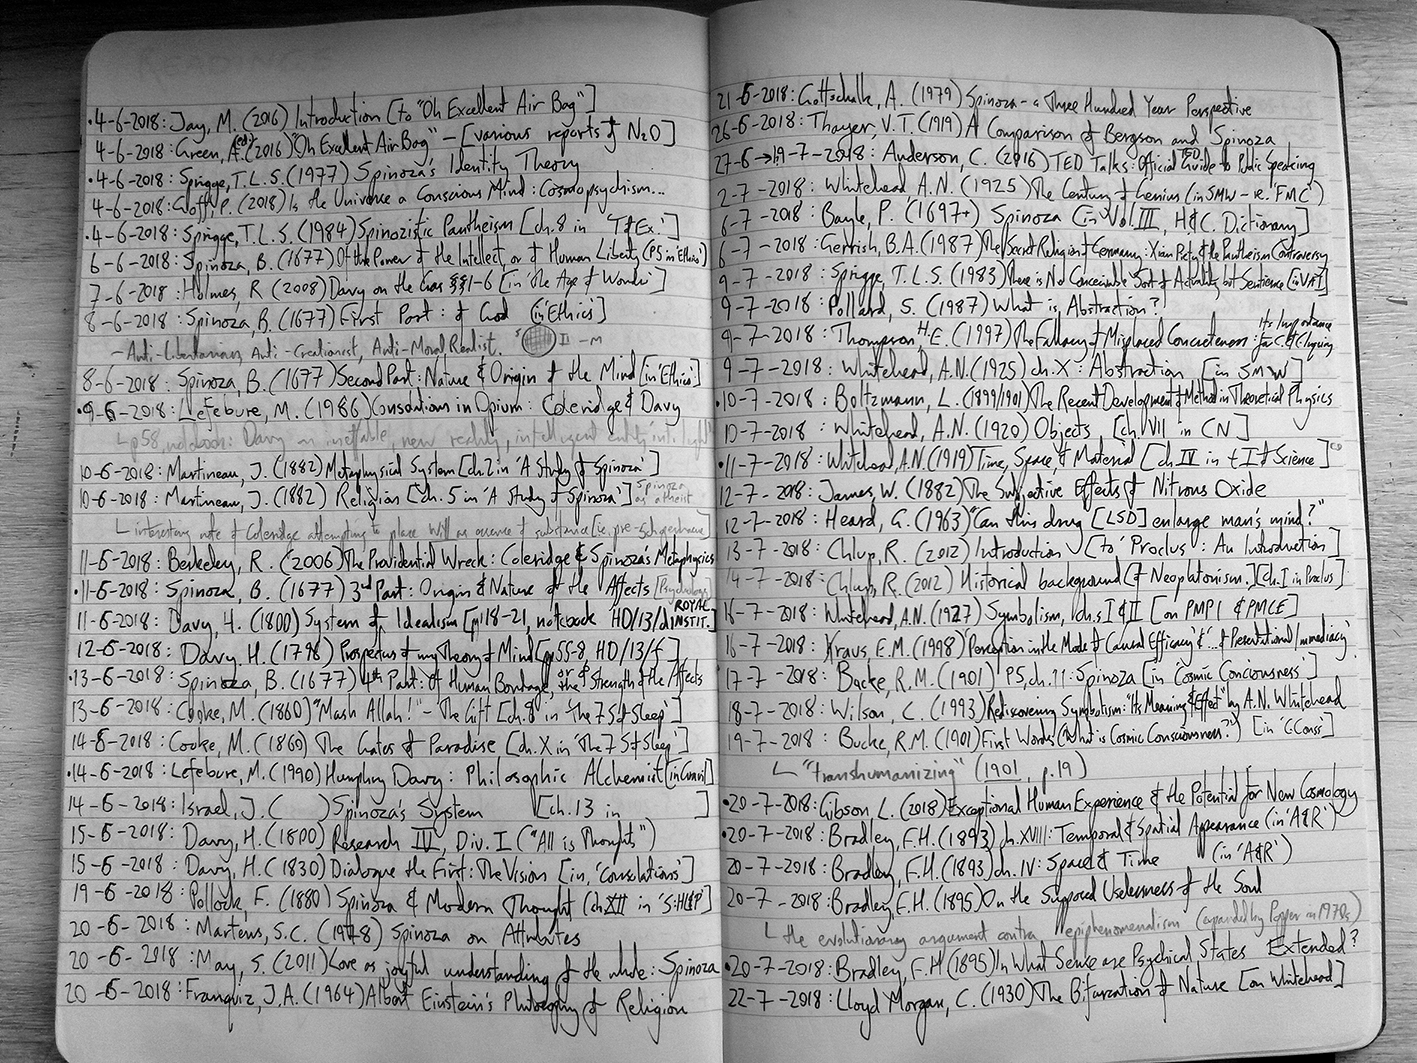 READINGS
·4-6-2018: Jay, M. (2016) Introduction [to "Oh Excellent Air Bag"]
4-6-2018: Green, A. (ed) (2016) "Oh Excellent Air Bag" – [various reports of N2O]
·4-6-2018: Sprigge, T.L.S. (1977) Spinoza's Identity Theory
4-6-2018: Goff, P. (2018) Is the Universe a Conscious Mind: Cosmopsychism...
·4-6-2018: Sprigge, T.L.S. (1984) Spinozistic Pantheism [ch.8 in 'T&Ex.']
6-6-2018: Spinoza, B. (1677) Of the Power of the Intellect, or of Human Liberty (P5 in 'Ethics')
7-6-2018: Holmes, R (2008) Davy on the Gas §§1-6 [in 'the Age of Wonder']
8-6-2018: Spinoza, B. (1677) First Part: of God (in 'Ethics']
– Anti-Libertarian, Anti-Creationist, Anti-Moral Realist.
8-6-2018: Spinoza, B. (1677) Second Part: Nature & Origin of the Mind [in 'Ethics']
·9-6-2018: Lefebure, M. (1986) Consolations in Opium: Coleridge & Davy
p58, notebook: Davy on ineffable, new reality, intelligent entity
10-6-2018: Martineau, J. (1882) Metaphysical System [ch.2 in 'A Study of Spinoza']
10-6-2018: Martineau, J. (1882) Religion [ch.5 in 'A Study of Spinoza'] Spinoza as atheist
interesting note of Coleridge attempting to place Will as essence of substance [i.e. pre-Schopenhauer]
11-6-2018: Berkeley, R. (2006) The Providential Wreck: Coleridge & Spinoza's Metaphysics
·11-6-2018: Spinoza, B. (1677) 3rd Part: Origin & Nature of the Affects [Psychology]
11-6-2018: Davy, H. (1800) System of Idealism [p118-21, notebook HD/13/d ROYAL INSTIT.]
12-6-2018: Davy, H. (1798) Prospectus of my Theory of Mind [p55-8 HD/13/f]
·13-6-2018: Spinoza, B. (1677) 4th Part: Of Human Bondage, or of the Strength of the Affects
13-6-2018: Cooke, M. (1860) "Mash Allah!" – The Gift [ch.8 in 'The 7 S of Sleep']
14-6-2018: Cooke, M. (1860) The Gates of Paradise [ch.X in 'The 7 S of Sleep']
·14-6-2018: Lefebure, M. (1990) Humphry Davy: Philosophic Alchemist
14-6-2018: Israel, J. ( ) Spinoza's System [ch.13 in ]
15-6-2018: Davy, H. (1800) Research IV, Div. I ("All is Thoughts")
15-6-2018: Davy, H. (1830) Dialogue the First: The Vision [in, 'Consolations']
19-6-2018: Pollock, F. (1880) Spinoza & Modern Thought (ch XII in 'S:HL&P']
20-6-2018: Martens, S.C. (1978) Spinoza on Attributes
20-6-2018: May, S. (2011) Love as joyful understanding of the whole: Spinoza
20-6-2018: Franquiz, J.A. (1964) Albert Einstein's Philosophy of Religion
21-6-2018: Gottschalk, A. (1979) Spinoza – a Three Hundred Year Perspective
26-6-2018: Thayer, V.T. (1919) A Comparison of Bergson and Spinoza
27-6→19-7-2018: Anderson, C. (2016) TED Talks: Official TED Guide to Public Speaking
2-7-2018: Whitehead A.N. (1925) The Century of Genius (in SMW – re. FMC)
6-7-2018: Bayle, P. (1697+) Spinoza (in Vol III, H&C. Dictionary)
6-7-2018: Gerrish, B.A. (1987) The Secret Religion of Germany: Xian Piety & the Pantheism Controversy
9-7-2018: Sprigge, T.L.S. (1983) There is No Conceivable Sort of Actuality but Sentience [in VAI]
9-7-2018: Pollard, S. (1987) What is Abstraction?
9-7-2018: Thompson, H.E. (1997) The Fallacy of Misplaced Concreteness: Its Importance for C. & C. Inquiry
9-7-2018: Whitehead, A.N. (1925) ch.X: Abstraction [in SMW]
·10-7-2018: Boltzmann, L. (1899/1901) The Recent Development of Method in Theoretical Physics
10-7-2018: Whitehead, A.N. (1920) Objects [ch.VII in CN]
·11-7-2018: Whitehead, A.N. (1919) Time, Space & Material [ch IV in of Science]
12-7-2018: James, W. (1882) The Subjective Effects of Nitrous Oxide
12-7-2018: Heard, G. (1963) "Can this drug [LSD] enlarge man's mind?"
13-7-2018: Chlup, R. (2012) Introduction [to 'Proclus: An Introduction]
14-7-2018: Chlup, R. (2012) Historical background [of Neoplatonism.] [ch.1 in Proclus]
16-7-2018: Whitehead, A.N. (1927) Symbolism, chs I & II [on PMPI & PMCE]
16-7-2018: Kraus, E.M. (1998) 'Perception in the Mode of Causal Efficacy' & '... of Presentational Immediacy'
17-7-2018: Bucke, R.M. (1901) P5, ch.11: Spinoza [in 'Cosmic Conciousness']
18-7-2018: Wilson, C. (1993) Rediscovering Symbolism: "Its Meaning & Effect" by A.N. Whitehead
19-7-2018: Bucke, R.M. (1901) First Words ('What is Cosmic Consciousness?') [in 'C.Cons']
"transhumanizing" (1901, p.19)
·20-7-2018: Gibson L. (2018) Exceptional Human Experience & the Potential for New Cosmology
·20-7-2018: Bradley, F.H. (1893) ch.XVIII: Temporal & Spatial Appearance (in 'A&R')
20-7-2018: Bradley, F.H. (1893) ch.IV: Space & Time (in 'A&R')
20-7-2018: Bradley, F.H. (1895) On the Supposed Uselessness of the Soul
the evolutionary argument contra epiphenomenalism (expanded by Popper in 1970s)
·20-7-2018: Bradley, F.H. (1895) In What Sense are Psychical States Extended?
22-7-2018: Lloyd Morgan, C. (1930) The Bifurcation of Nature [on Whitehead]